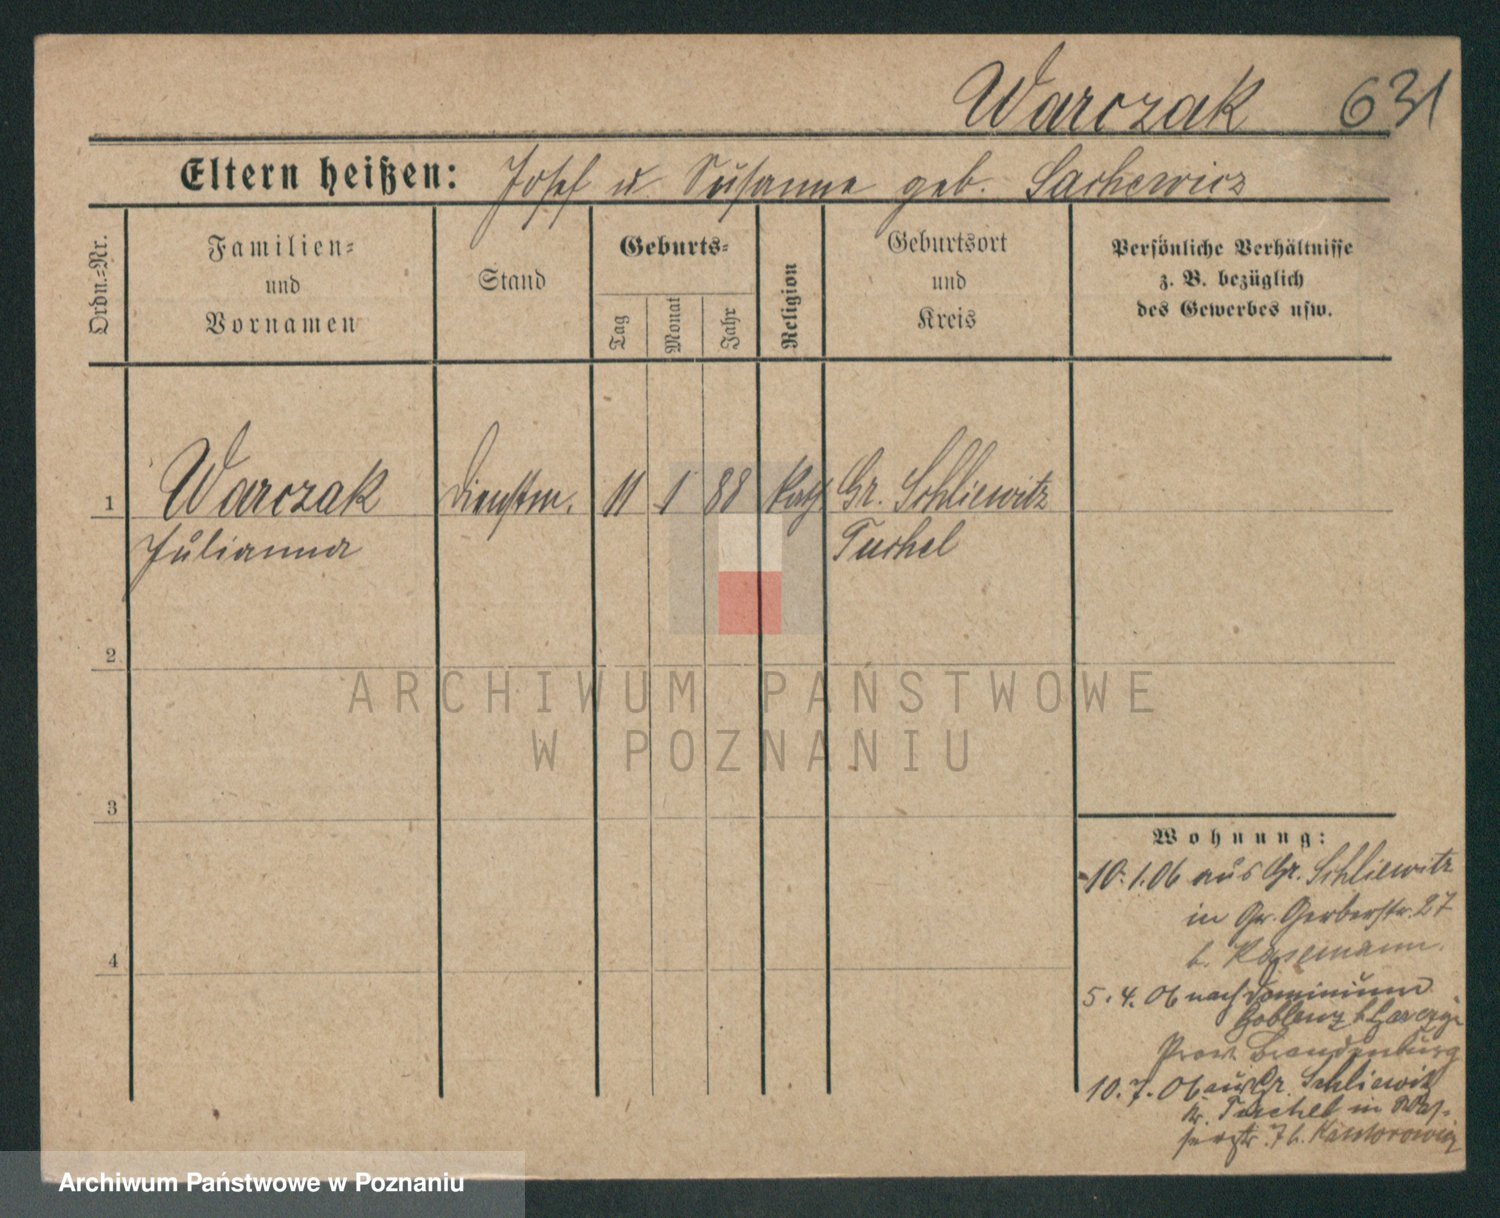 Warczak 631
Eltern heißen: Josef u Susanne geb. Sachewicz
Ordn.=Nr.
Familien=
und
Vornamen
Stand
Geburts=
Tag
Monat
Jahr
Religion
Geburtsort
und
Kreis
Persönliche Verhältnisse
z. B. bezüglich
des Gewerbes usw.
1 Warczak Dienstm. 11 1 88 kath Gr. Schliewitz
Julianna Tuchel
2
3
4
ARCHIWUM PAŃSTWOWE
W POZNANIU
Wohnung:
10. 1. 06 aus Gr. Schliewitz
in Gr. Gerberstr. 27
b.
5. 4. 06 nach Dominium
Prov. Brandenburg
10. 7. 06 aus Gr. Schliewitz
Kr. Tuchel in Was-
serstr. 7 b. Kantorowicz
Archiwum Państwowe w Poznaniu